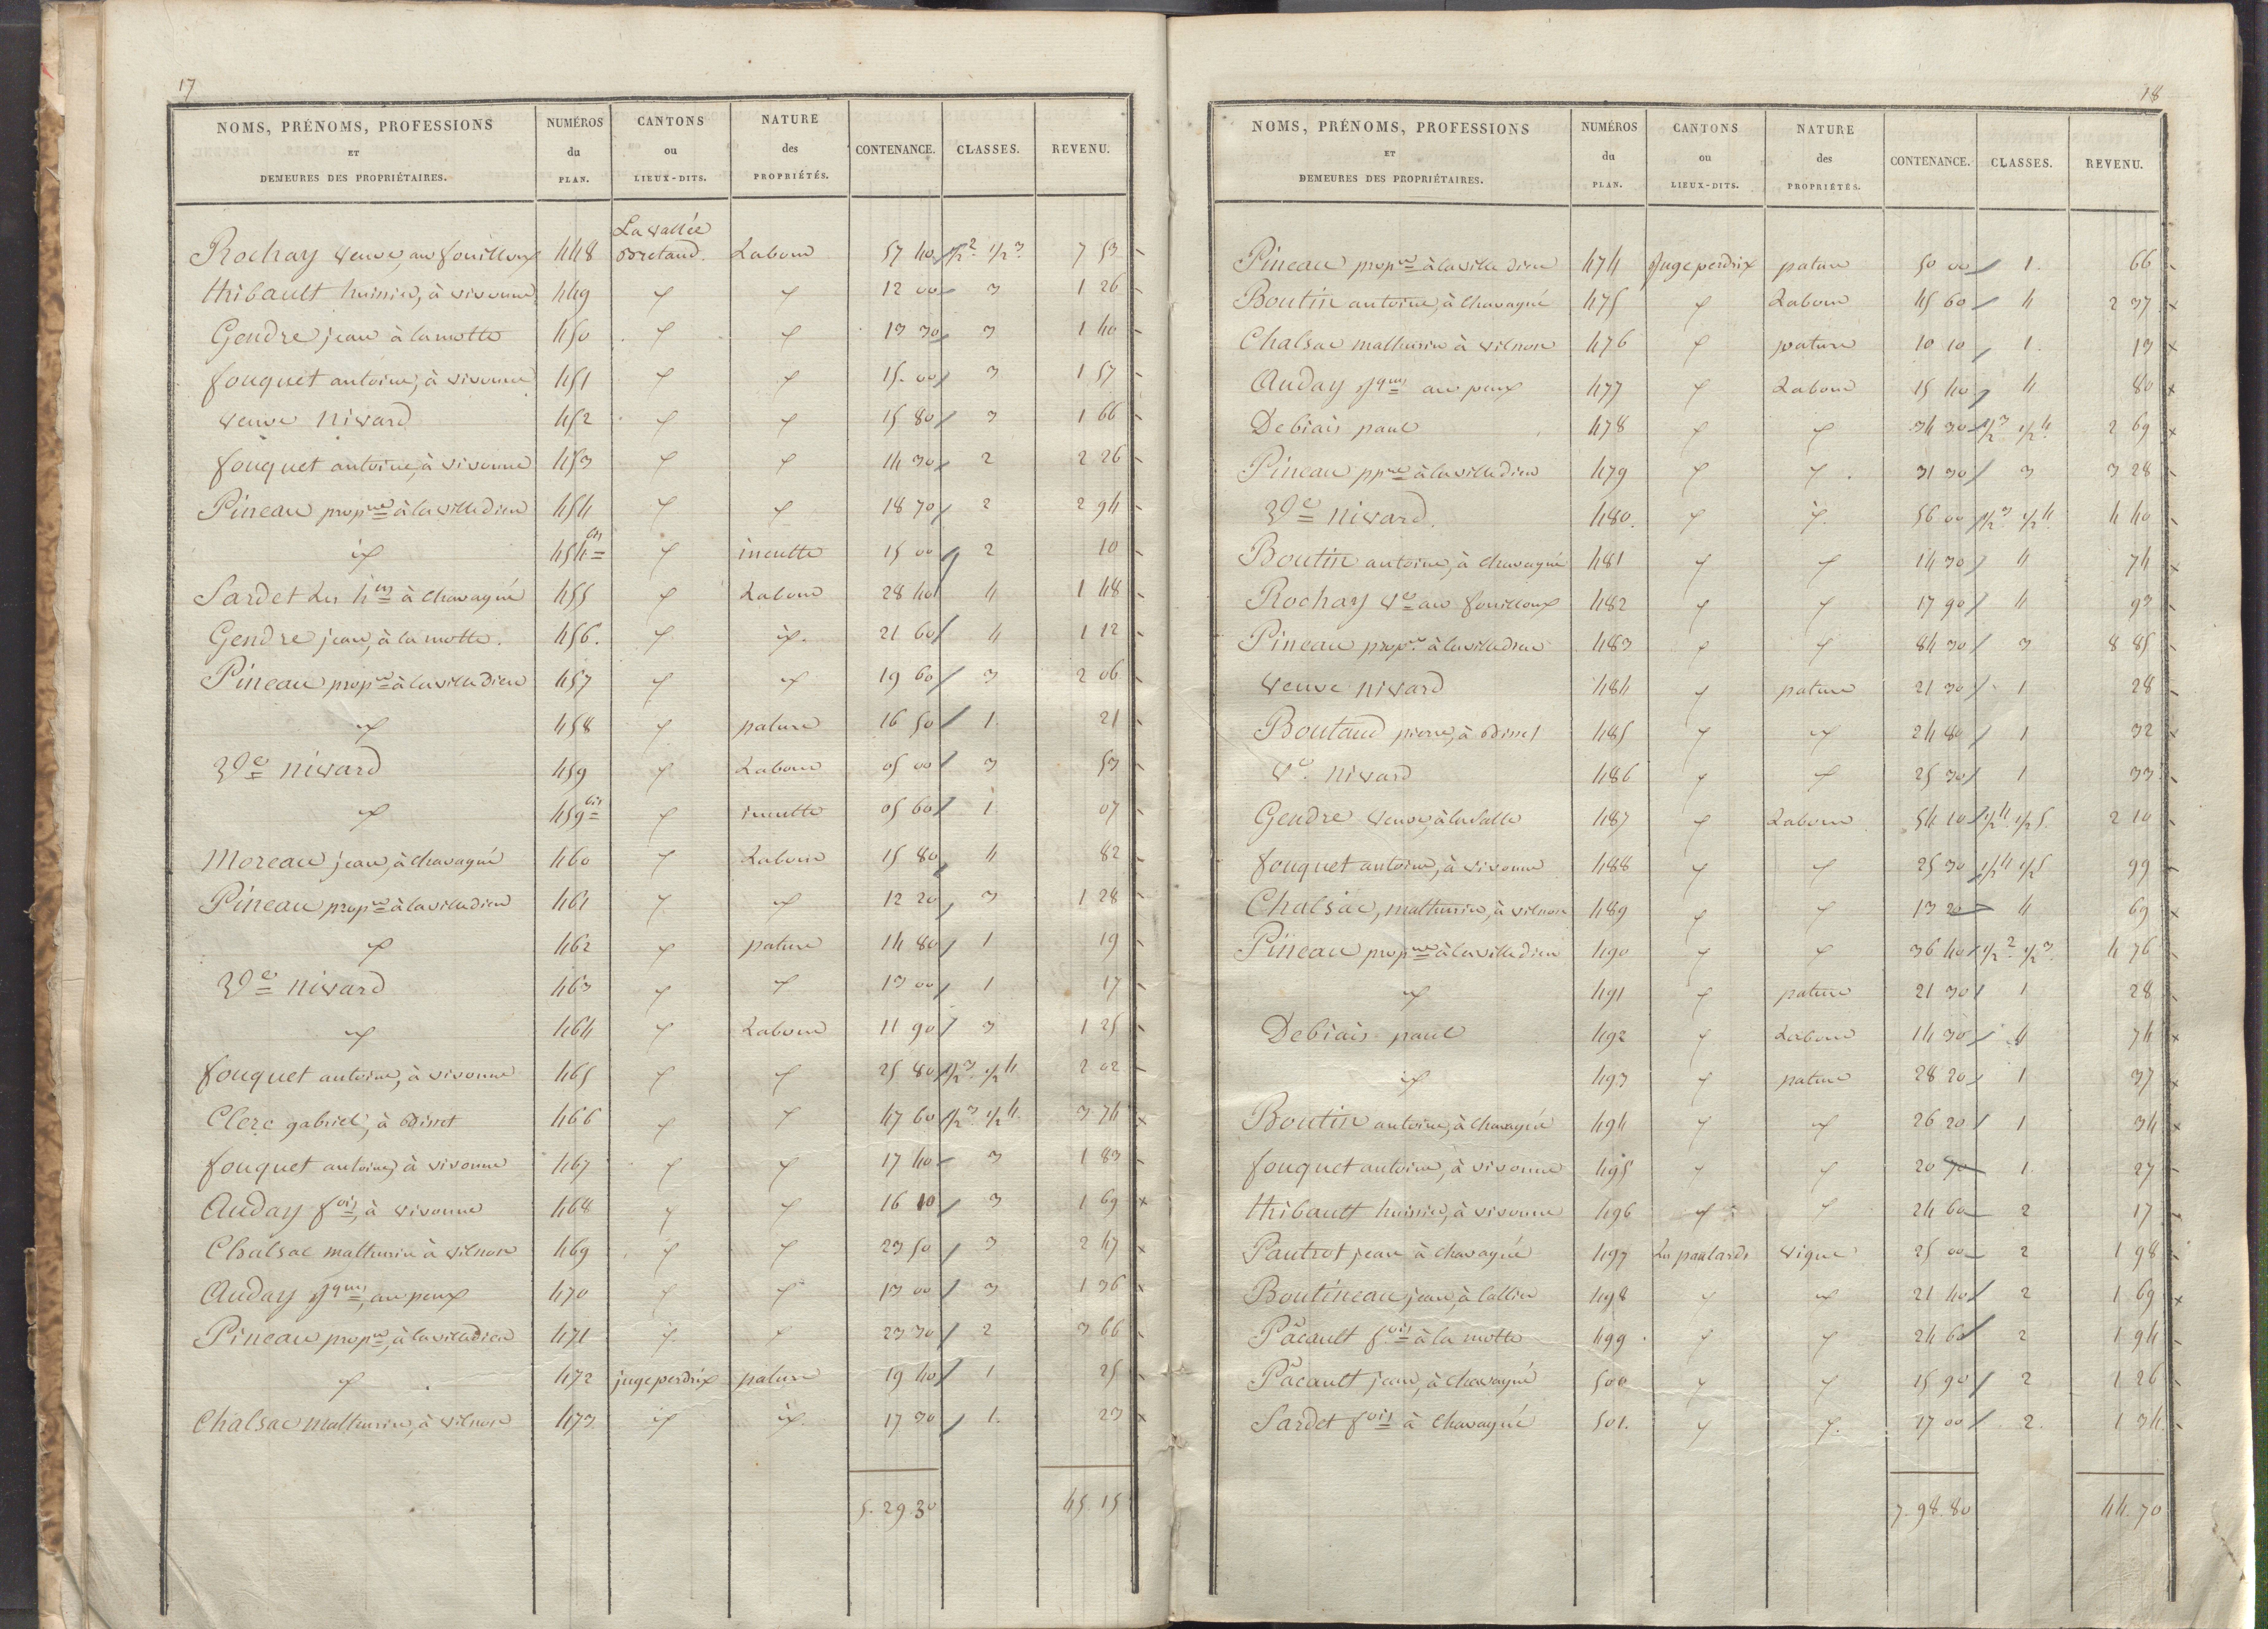 17
NOMS, PRÉNOMS, PROFESSIONS ET DEMEURES DES PROPRIÉTAIRES. NUMÉROS du PLAN. CANTONS ou LIEUX-DITS. NATURE des PROPRIÉTÉS. CONTENANCE. CLASSES. REVENU.
La vallée
Rochay veuve, au fouilloux 448 Bretaud. Labour 57 40 1/2 2 1/2 3 7 53
thibault huissier, à vivonne 449 " " 12 00 3 1 26
Gendre jean à la motte 450 " " 13 30 3 1 40
fouquet antoine, à vivonne 451 " " 15 00 3 1 57
veuve nivard 452 " " 15 80 3 1 66
fouquet antoine, à vivonne 453 " " 14 30 2 2 26
Pineau propre à la villedieu 454 " " 18 70 2 2 94
id 454 bis " inculte 15 00 2 10
Sardet Les hers à Chavagné 455 " Labour 28 40 4 1 48
Gendre jean, à la motte. 456. " id. 21 60 4 1 12
Pineau propre à la villedieu 457 " " 19 60 3 2 06
" 458 " pature 16 50 1. 21
Ve nivard 459 " Labour 05 00 3 53
" 459 bis " inculte 05 60 1. 07
Moreau jean, à Chavagné 460 " Labour 15 80 4 82
Pineau propre à la villedieu 461 " " 12 20 3 1 28
" 462 " pature 14 80 1 19
Ve nivard 463 " " 13 00 1 17
" 464 " Labour 11 90 3 1 25
fouquet antoine, à vivonne 465 " " 25 80 1/2 3 1/2 4 2 02
Clerc gabriel, à Disset 466 " " 47 60 1/2 3 1/2 4 3 74
fouquet antoine, à vivonne 467 " " 17 40 3 1 83
Auday fois, à vivonne 468 " " 16 10 3 1 69
Chalsac mathurin à vilnon 469 " " 23 50 3 2 47
Auday jques, au peux 470 " " 13 00 3 1 36
Pineau propre, à la villedieu 471 " " 23 30 2 3 66
" 472 jugeperdrix pature 19 40 1 25
Chalsac mathurin, à vilnon 473 id id. 17 30 1. 23
5. 29. 30 45. 15
18
NOMS, PRÉNOMS, PROFESSIONS ET DEMEURES DES PROPRIÉTAIRES. NUMÉROS du PLAN. CANTONS ou LIEUX-DITS. NATURE des PROPRIÉTÉS. CONTENANCE. CLASSES. REVENU.
Pineau propre à la ville dieu 474 Jugeperdrix pature 50 00 1. 66
Boutin antoine, à Chavagné 475 " Labour 45 60 4 2 37
Chalsac mathurin à vilnon 476 " pature 10 10 1. 13
Auday jques au peux 477 " Labour 15 40 4 80
Debiais paul 478 " " 34 30 1/2 3 1/2 4 2 69
Pineau ppre à la villedieu 479 " " 31 30 3 3 28
Ve nivard. 480. " " 56 00 1/2 3 1/2 4 4 40
Boutin antoine, à chavagné 481 " " 14 30 4 74
Rochay Ve au fouilloux 482 " " 17 90 4 93
Pineau propre à la villedieu 483 " " 84 30 3 8 85
Veuve nivard 484 " pature 21 30 1 28
Boutaud pierre, à Disset 485 " " 24 80 1 32
Ve. nivard 486 " " 25 30 1 33
Gendre veuve, à la salle 487 " Labour 54 10 1/2 4 1/2 5. 2 10
fouquet antoine, à vivonne 488 " " 25 30 1/2 4 1/2 5 99
Chalsac, mathurin, à vilnon 489 " " 13 20 4 69
Pineau propre à la villedieu 490 " " 36 40 1/2 2 1/2 3 4 76
" 491 " pature 21 30 1 28
Debiais paul 492 " Labour 14 30 4 74
" 493 " pature 28 20 1 37
Boutin antoine, à Chavagné 494 " " 26 20 1 34
fouquet antoine, à vivonne 495 " " 20 70 1. 27
thibault huissier, à vivonne 496 " " 24 60 2 17
Pautrot jean à chavagné 497 Les paulards vigne 25 00 2 1 98
Boutineau jean, à 498 " " 21 40 2 1 69
Pacault fois à la motte 499 " " 24 60 2 1 94
Pacault jean, à Chavagné 500 " " 15 90 2 1 26
Sardet fois à Chavagné 501. " " 17 00 2. 1 34
7. 98. 80 44. 70